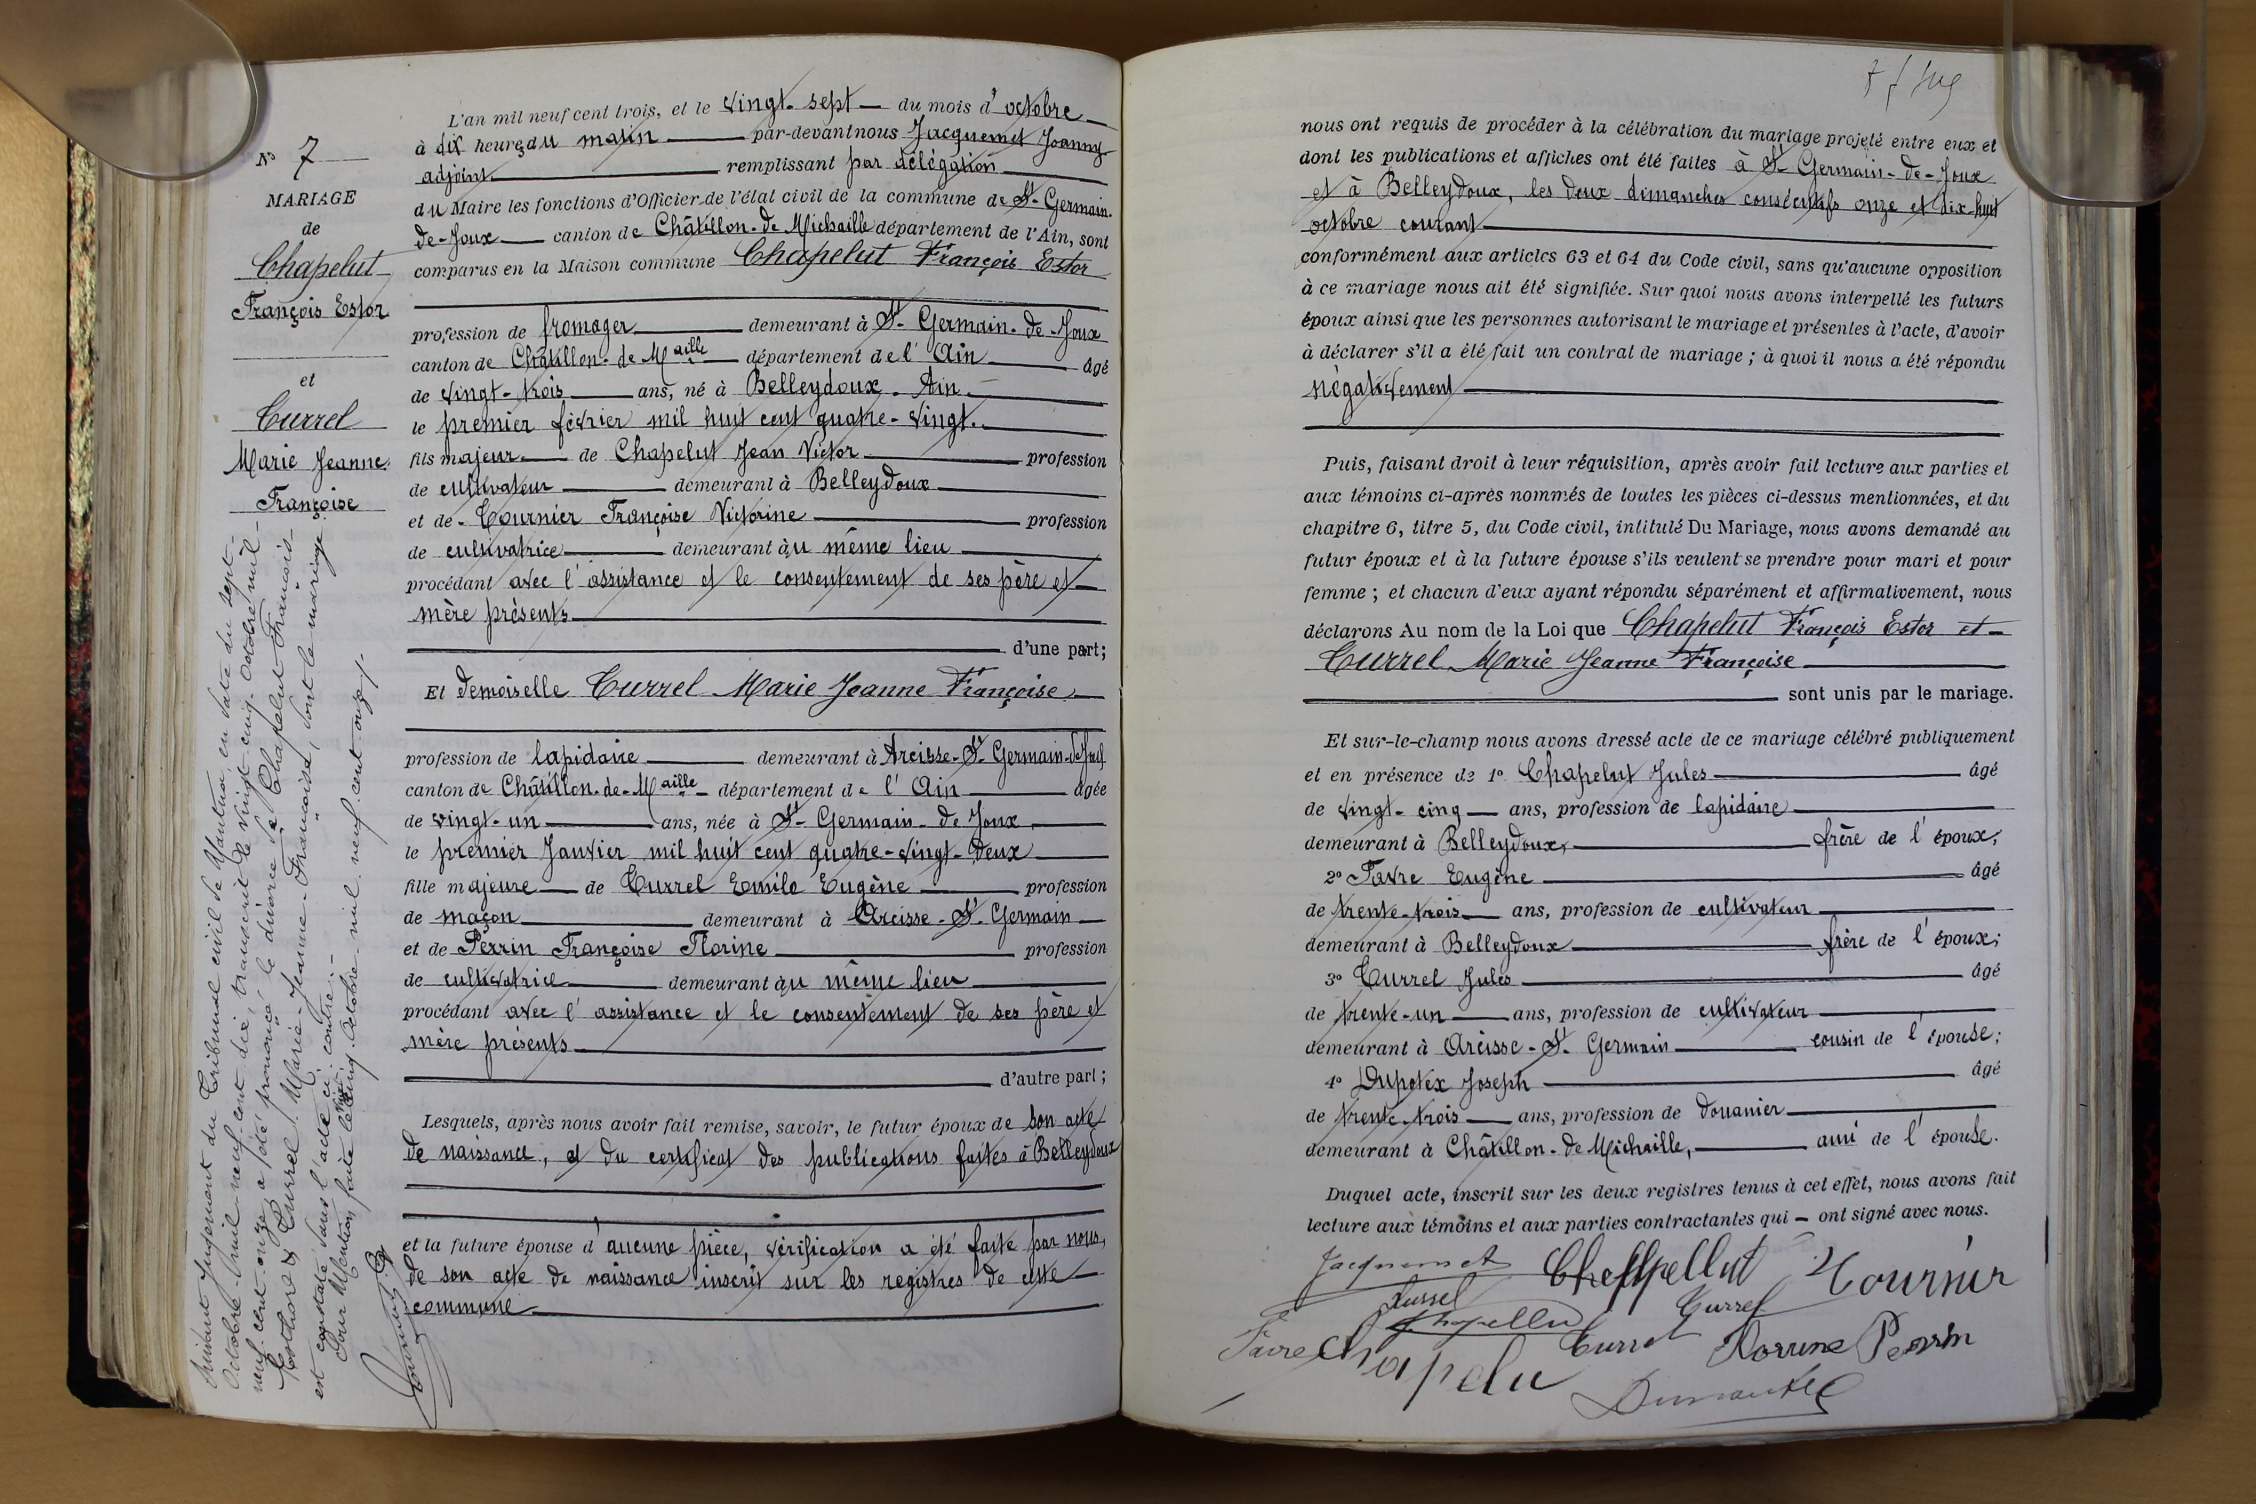 N° 7
MARIAGE
de
Chapelut
François Estor
et
Currel
Marie Jeanne
Françoise
Suivant jugement du Tribunal civil de Nantua, en date du sept
Octobre mil neuf cent dix, transcrit le vingt cinq Octobre mil
neuf cent onze a été prononcé le divorce de Chapelut François
Esthor & Currel Marie-Jeanne-Françoise, dont le mariage
est constaté dans l'acte ci-contre.-
Pour Mention faite le vingt cinq Octobre mil neuf cent onze /.
L'an mil neuf cent trois, et le vingt-sept du mois d'octobre
à dix heures du matin par-devant nous Jacquemet Joanny
adjoint remplissant par délégation
du Maire les fonctions d'Officier de l'état civil de la commune de St-Germain-
de-Joux canton de Châtillon-de-Michaille département de l'Ain, sont
comparus en la Maison commune Chapelut François Estor
profession de fromager demeurant à St-Germain-de-Joux
canton de Châtillon-de-Maille département de l'Ain âgé
de vingt-trois ans, né à Belleydoux - Ain -
le premier février mil huit cent quatre-vingt.
fils majeur de Chapelut Jean Victor profession
de cultivateur demeurant à Belleydoux
et de Tournier Françoise Victorine profession
de cultivatrice demeurant au même lieu
procédant avec l'assistance et le consentement de ses père et
mère présents
d'une part;
Et demoiselle Currel Marie Jeanne Françoise
profession de lapidaire demeurant à Arcisse-St-Germain-de-Joux
canton de Châtillon-de-Maille département de l'Ain âgée
de vingt-un ans, née à St-Germain-de-Joux
le premier Janvier mil huit cent quatre-vingt-deux
fille majeure de Currel Emile Eugène profession
de maçon demeurant à Arcisse-St-Germain
et de Perrin Françoise Florine profession
de cultivatrice demeurant au même lieu
procédant avec l'assistance et le consentement de ses père et
mère présents
d'autre part;
Lesquels, après nous avoir fait remise, savoir, le futur époux de son acte
de naissance, et du certificat des publications faites à Belleydoux
et la future épouse d'aucune pièce, vérification a été faite par nous,
de son acte de naissance inscrit sur les registres de cette
commune
nous ont requis de procéder à la célébration du mariage projeté entre eux et
dont les publications et affiches ont été faites à St-Germain-de-Joux
et à Belleydoux, les deux dimanches consécutifs onze et dix-huit
octobre courant
conformément aux articles 63 et 64 du Code civil, sans qu'aucune opposition
à ce mariage nous ait été signifiée. Sur quoi nous avons interpellé les futurs
époux ainsi que les personnes autorisant le mariage et présentes à l'acte, d'avoir
à déclarer s'il a été fait un contrat de mariage; à quoi il nous a été répondu
négativement
Puis, faisant droit à leur réquisition, après avoir fait lecture aux parties et
aux témoins ci-après nommés de toutes les pièces ci-dessus mentionnées, et du
chapitre 6, titre 5, du Code civil, intitulé Du Mariage, nous avons demandé au
futur époux et à la future épouse s'ils veulent se prendre pour mari et pour
femme; et chacun d'eux ayant répondu séparément et affirmativement, nous
déclarons Au nom de la Loi que Chapelut François Estor et
Currel Marie Jeanne Françoise
sont unis par le mariage.
Et sur-le-champ nous avons dressé acte de ce mariage célébré publiquement
et en présence de 1° Chapelut Jules âgé
de vingt-cinq ans, profession de lapidaire
demeurant à Belleydoux, frère de l'époux;
2° Favre Eugène âgé
de trente-trois ans, profession de cultivateur
demeurant à Belleydoux frère de l'époux;
3° Currel Jules âgé
de trente-un ans, profession de cultivateur
demeurant à Arcisse-St-Germain cousin de l'épouse;
4° Dupotex Joseph âgé
de trente-trois ans, profession de douanier
demeurant à Châtillon-de-Michaille, ami de l'épouse.
Duquel acte, inscrit sur les deux registres tenus à cet effet, nous avons fait
lecture aux témoins et aux parties contractantes qui ont signé avec nous.
Jacquemet Tournier
Currel
Favre Chapelu Currel Perrin